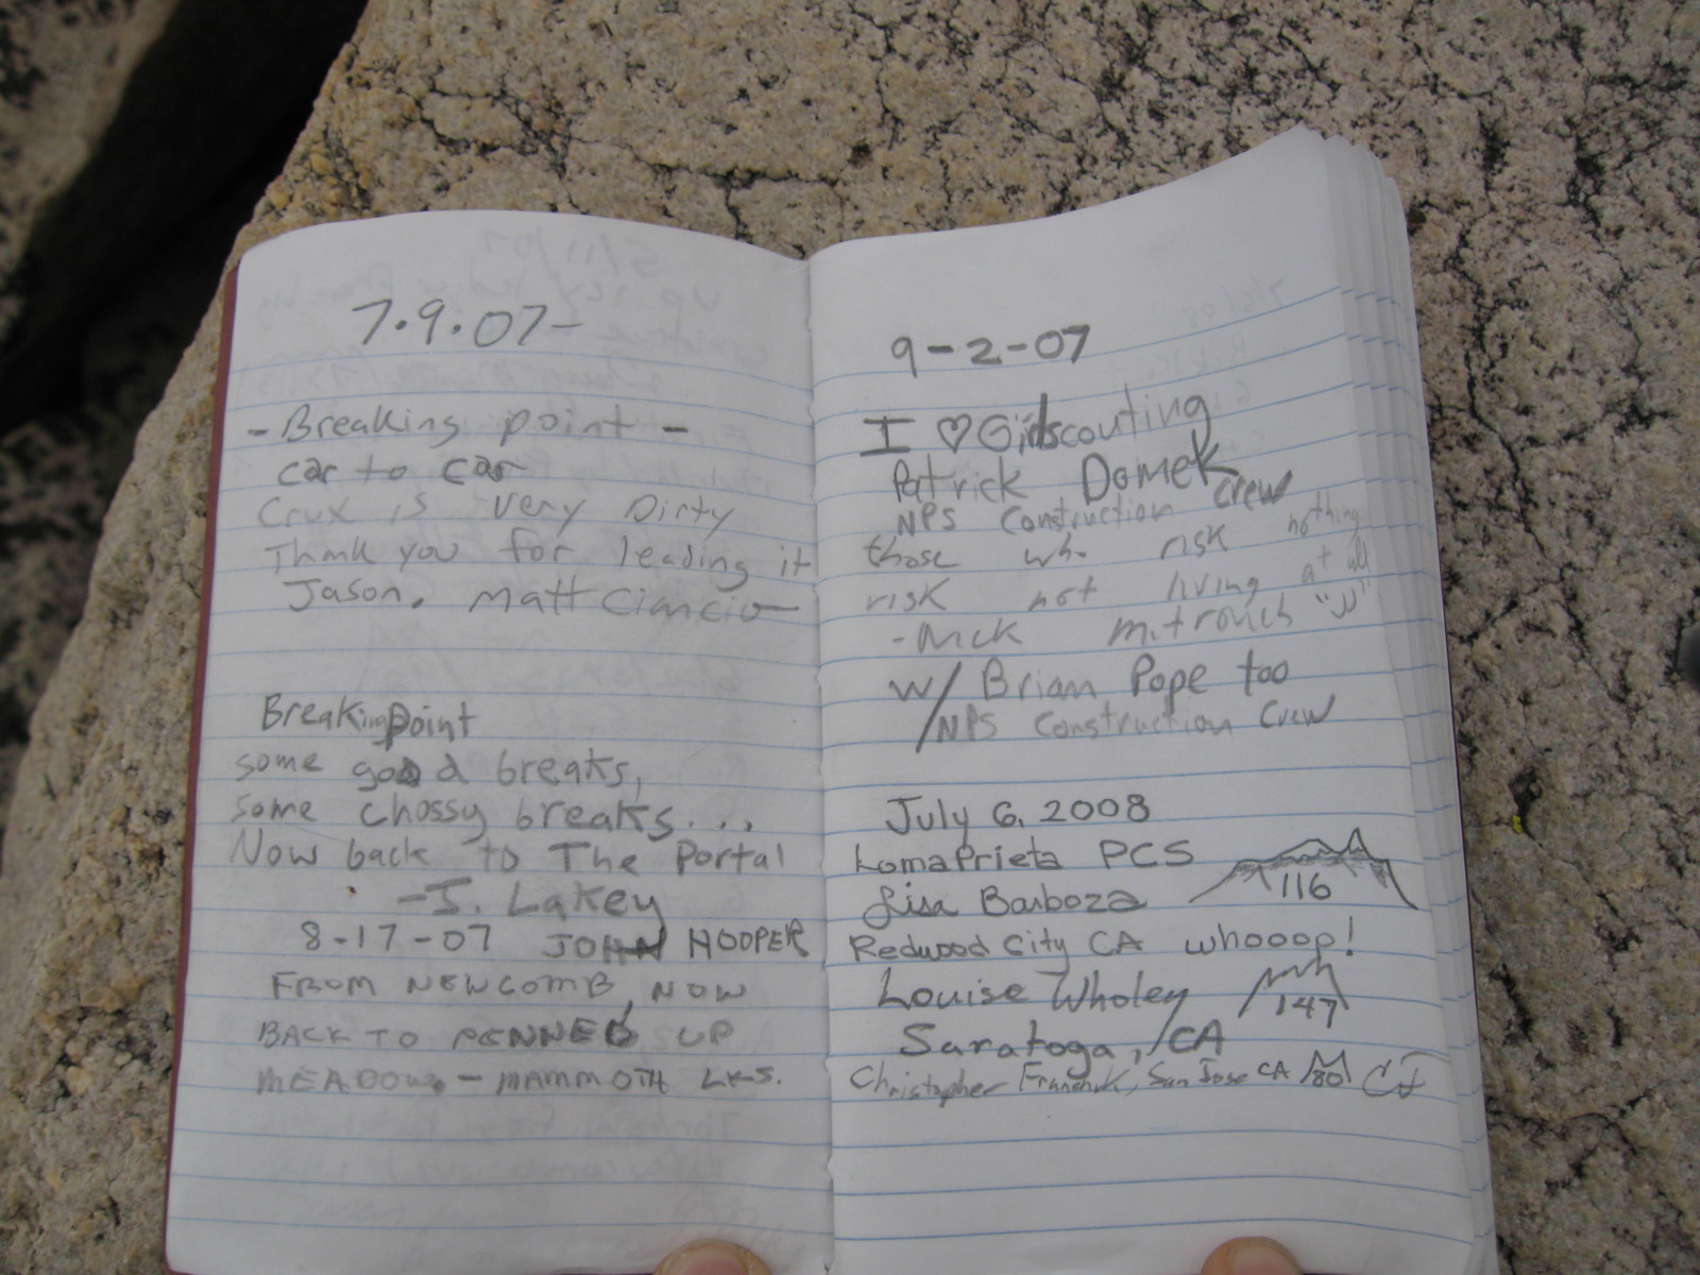 7.9.07-
- Breaking point -
car to car
Crux is very Dirty
Thank you for leading it
Jason. Matt Ciancio
Breaking Point
some good breaks,
some chossy breaks...
Now back to The Portal
-J. Lakey
8-17-07 JOHN HOOPER
FROM NEWCOMB, NOW
BACK TO PENNED UP
MEADOW - MAMMOTH LKS.
9-2-07
I ♡ Girlscouting
Patrick Domek
NPS Construction Crew
those who risk nothing
risk not living at all
-Nick
w/ Brian Pope too
/NPS Construction Crew
July 6, 2008
Loma Prieta PCS
116
Lisa Barboza
Redwood City CA whooop!
Louise Wholey
147
Saratoga, CA
Christopher San Jose CA 80